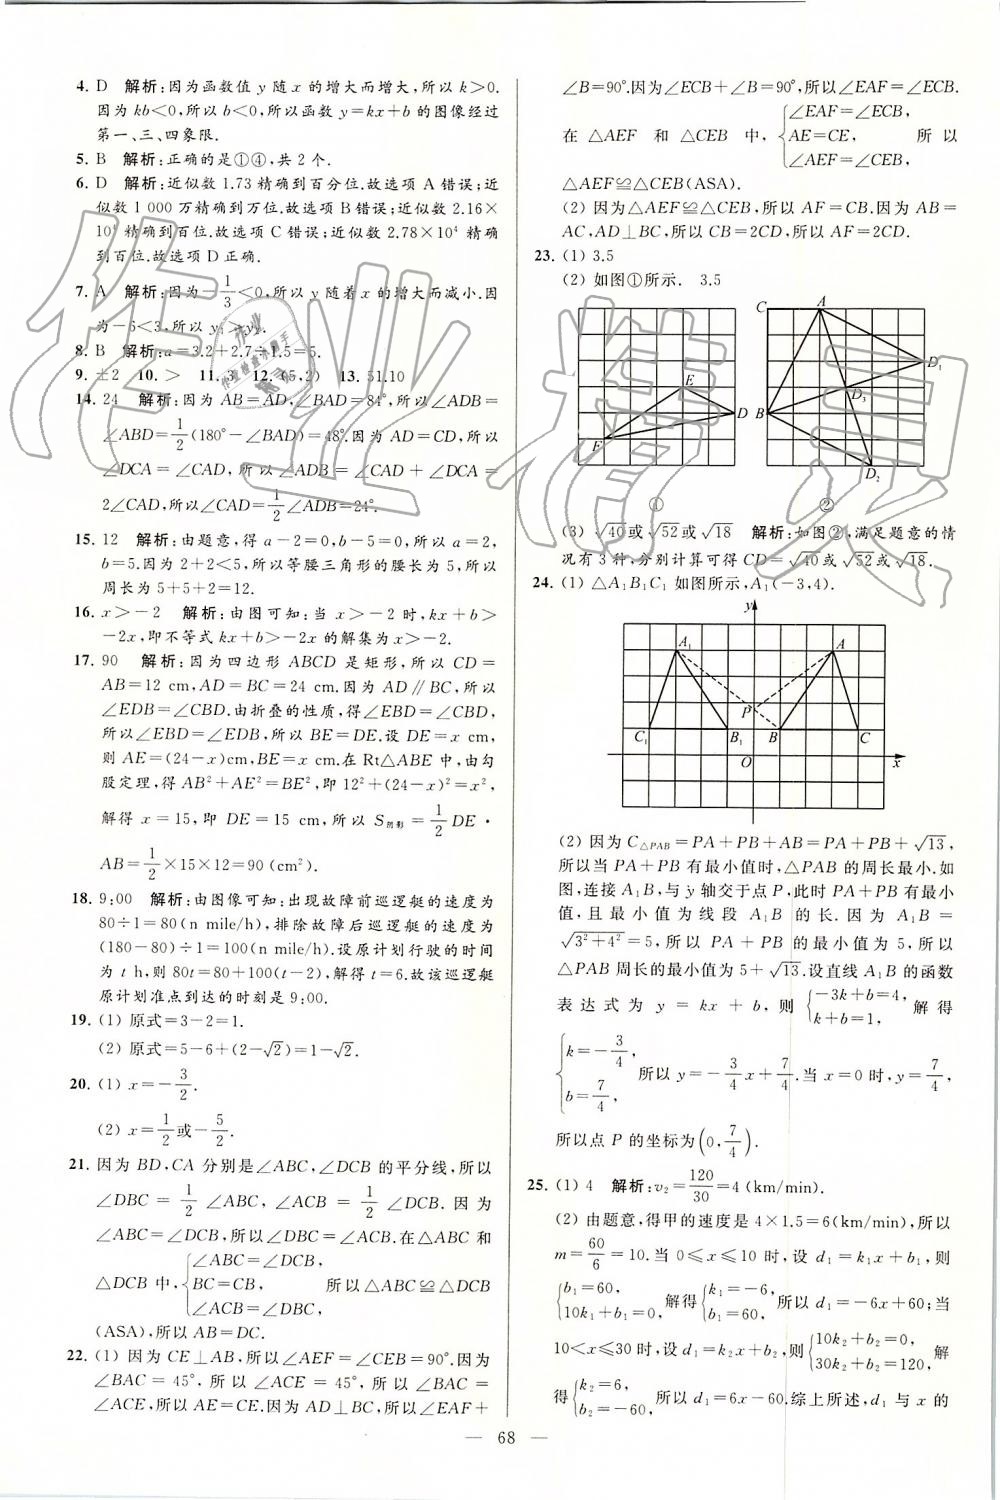 4. D　解析:因为函数值 y 随 x 的增大而增大,所以 k>0.
因为 kb<0,所以 b<0,所以函数 y=kx+b 的图像经过
第一、三、四象限.
5. B　解析:正确的是①④,共 2 个.
6. D　解析:近似数 1.73 精确到百分位.故选项 A 错误;近
似数 1 000 万精确到万位.故选项 B 错误;近似数 2.16×
10⁴ 精确到百位.故选项 C 错误;近似数 2.78×10⁴ 精确
到百位.故选项 D 正确.
7. A　解析:因为-1/3<0,所以 y 随着 x 的增大而减小.因
为-6<3,所以 y₁>y₂.
8. B　解析:a=3.2+2.7÷1.5=5.
9. ±2　10. >　11. 3　12. (5,2)　13. 51.10
14. 24　解析:因为 AB=AD,∠BAD=84°,所以∠ADB=
∠ABD=1/2(180°-∠BAD)=48°.因为 AD=CD,所以
∠DCA=∠CAD,所以∠ADB=∠CAD+∠DCA=
2∠CAD,所以∠CAD=1/2∠ADB=24°.
15. 12　解析:由题意,得 a-2=0,b-5=0,所以 a=2,
b=5.因为 2+2<5,所以等腰三角形的腰长为 5,所以
周长为 5+5+2=12.
16. x>-2　解析:由图可知:当 x>-2 时,kx+b>
-2x,即不等式 kx+b>-2x 的解集为 x>-2.
17. 90　解析:因为四边形 ABCD 是矩形,所以 CD=
AB=12 cm,AD=BC=24 cm.因为 AD∥BC,所以
∠EDB=∠CBD.由折叠的性质,得∠EBD=∠CBD,
所以∠EBD=∠EDB,所以 BE=DE.设 DE=x cm,
则 AE=(24-x)cm,BE=x cm.在 Rt△ABE 中,由勾
股定理,得 AB²+AE²=BE²,即 12²+(24-x)²=x²,
解得 x=15,即 DE=15 cm,所以 S阴影=1/2 DE·
AB=1/2×15×12=90(cm²).
18. 9:00　解析:由图像可知:出现故障前巡逻艇的速度为
80÷1=80(n mile/h),排除故障后巡逻艇的速度为
(180-80)÷1=100(n mile/h).设原计划行驶的时间
为 t h,则 80t=80+100(t-2),解得 t=6.故该巡逻艇
原计划准点到达的时刻是 9:00.
19. (1) 原式=3-2=1.
(2) 原式=5-6+(2-√2)=1-√2.
20. (1) x=-3/2.
(2) x=1/2或-5/2.
21. 因为 BD,CA 分别是∠ABC,∠DCB 的平分线,所以
∠DBC=1/2∠ABC,∠ACB=1/2∠DCB.因为
∠ABC=∠DCB,所以∠DBC=∠ACB.在△ABC 和
△DCB 中,{∠ABC=∠DCB, BC=CB, ∠ACB=∠DBC, 所以△ABC≌△DCB
(ASA),所以 AB=DC.
22. (1) 因为 CE⊥AB,所以∠AEF=∠CEB=90°.因为
∠BAC=45°,所以∠ACE=45°,所以∠BAC=
∠ACE,所以 AE=CE.因为 AD⊥BC,所以∠EAF+
∠B=90°.因为∠ECB+∠B=90°,所以∠EAF=∠ECB.
在△AEF 和△CEB 中,{∠EAF=∠ECB, AE=CE, ∠AEF=∠CEB, 所以
△AEF≌△CEB(ASA).
(2) 因为△AEF≌△CEB,所以 AF=CB.因为 AB=
AC,AD⊥BC,所以 CB=2CD,所以 AF=2CD.
23. (1) 3.5
(2) 如图①所示.　3.5
E
D
F
①
C
A
D₁
D₃
B
D₂
②
(3) √40或√52或√18　解析:如图②,满足题意的情
况有 3 种,分别计算可得 CD=√40或√52或√18.
24. (1) △A₁B₁C₁ 如图所示,A₁(-3,4).
y
A₁
A
P
C₁
B₁
B
C
O
x
(2) 因为 C△PAB=PA+PB+AB=PA+PB+√13,
所以当 PA+PB 有最小值时,△PAB 的周长最小.如
图,连接 A₁B,与 y 轴交于点 P,此时 PA+PB 有最小
值,且最小值为线段 A₁B 的长.因为 A₁B=
√(3²+4²)=5,所以 PA+PB 的最小值为 5,所以
△PAB 周长的最小值为 5+√13.设直线 A₁B 的函数
表达式为 y=kx+b,则{-3k+b=4, k+b=1, 解得
{k=-3/4, b=7/4, 所以 y=-3/4x+7/4.当 x=0 时,y=7/4,
所以点 P 的坐标为(0,7/4).
25. (1) 4　解析:v₂=120/30=4(km/min).
(2) 由题意,得甲的速度是 4×1.5=6(km/min),所以
m=60/6=10.当 0≤x≤10 时,设 d₁=k₁x+b₁,则
{b₁=60, 10k₁+b₁=0, 解得{k₁=-6, b₁=60, 所以 d₁=-6x+60;当
10<x≤30 时,设 d₁=k₂x+b₂,则{10k₂+b₂=0, 30k₂+b₂=120, 解
得{k₂=6, b₂=-60, 所以 d₁=6x-60.综上所述,d₁ 与 x 的
— 68 —